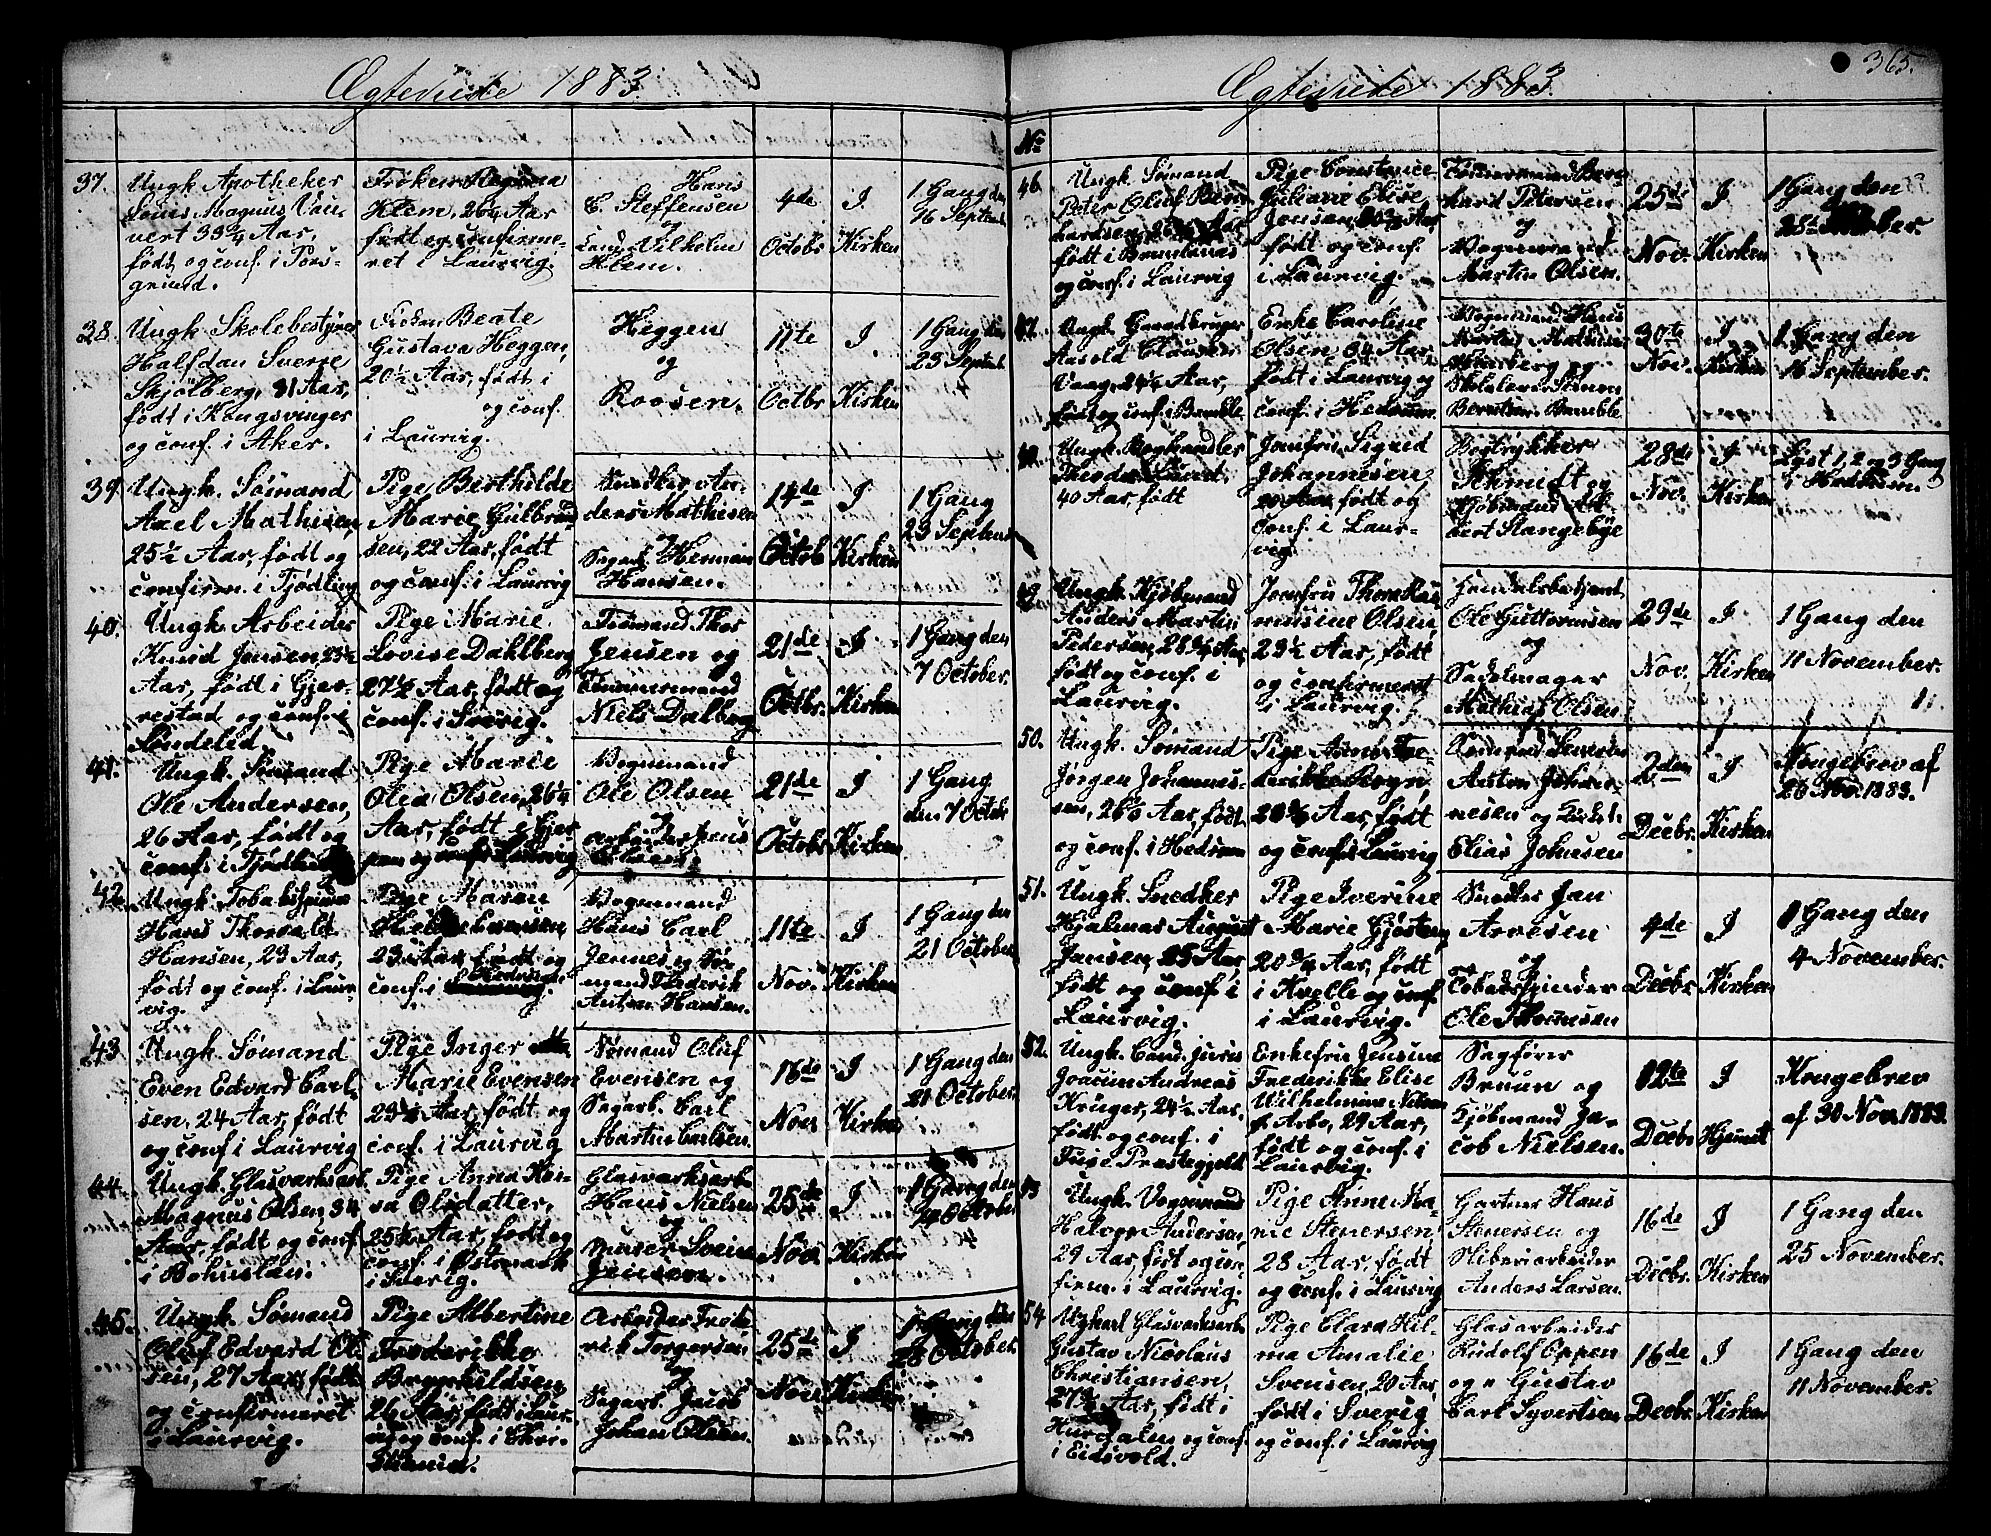 Ægteviede 1883.
37.
Ungk. Apotheker
Louis Magnus Vau-
vert 33 3/4 Aar,
født og conf. i Pors-
grund.
Frøken Regina
Klem, 26 1/4 Aar
født og confirme-
ret i Laurvig.
Hans
C. Steffensen
og
Cand. Vilhelm
Klem.
4de
Octobr
I
Kirken
1 Gang den
16 Septembr
38.
Ungk. Skolebestyrer
Halfdan Sverre
Skjölberg, 31 Aar,
født i Kongsvinger
og conf. i Aker.
Frøken Beate
Gustava Heggen,
20 1/2 Aar, født i
og conf.
i Laurvig.
Heggen
og
Roosen.
11te
Octbr
I
Kirken
1 Gang den
23 Septemb
39
Ungk. Sømand
Axel Mathisen,
25 1/2 Aar, født og
confirm. i Tjødling
Pige Berthilde
Marie Gulbrand
sen, 22 Aar, født
og conf. i Laurvig
ders Mathisen
og
Sagarb. Herman
Hansen.
14de
Octob
I
Kirken
1 Gang
23 Septembr
40.
Ungk. Arbeider
Knud Jensen, 23 1/2
Aar, født i Gjer-
restad og conf. i
Søndeled.
Pige Marie
Lovise Dahlberg
27 1/2 Aar, født og
conf. i Sverig.
Tømmermand Thor
Jensen og
Tømmermand
Niels Dalberg
21de
Octbr.
I
Kirken
1 Gang den
7 October.
41.
Ungk. Sømand
Ole Andersen,
26 Aar, født og
conf. i Tjødling
Pige Marie
Olea Olsen, 26 1/4
Aar, født i Gjer
pen og conf. i Laurvig
Vognmand
Ole Olsen
og
Arbeider Jens
21de
Octobr
I
Kirken
1 Gang
den 7 Octobr
42
Ungk. Tobakspinder
Hans Thorvald
Hansen, 23 Aar,
født og conf. i Laur-
vig.
Pige Maren
23 Aar, født og
conf. i
Vognmand
Hans Carl
Jennes og Sø-
mand Frederik
Anton Hansen.
11te
Nov.
I
Kirken
1 Gang den
21 October
43
Ungk. Sømand
Even Edvard Carl-
sen, 24 Aar, født
og conf. i Laurvig
Pige Inger
Marie Evensen
23 1/2 Aar, født og
conf. i Laurvig
Sømand Oluf
Evensen og
Sagarb. Carl
Martin Carlsen.
16de
Nov
I
Kirken
1 Gang den
21 October
44.
Ungk. Glasværksarb.
Magnus Olsen 34
Aar, født og conf.
i Bohuslän.
Pige Anna Kai-
sa Olsdatter,
25 1/2 Aar, født og
conf. i Østmark
i Sverig.
Glasværksarb.
Hans Nielsen
og
Murer Svein
Jensen.
25de
Nov.
I
Kirken
1 Gang den
October
45.
Ungk. Sømand
Oluf Edvard Ol-
sen, 27 Aar, født
og confirmeret
i Laurvig.
Pige Albertine
Frederikke
Brynhildsen,
26 Aar, født i Laur-
vig og conf. i Chri-
stiania.
Arbeider Fred-
rik Torgersen
og
Sagarb. Jacob
Johan Olsen.
25de
Nov
I
Kirken
1 Gang den
28 October.
Ægteviede 1883.
365.
No
46
Ungk. Sømand
Peter Oluf Bern-
hardsen, Aar
født i Brunlanæs
og conf. i Laurvig
Pige Constance
Juliane Elise
Jensen, Aar,
født og conf.
i Laurvig
Tømmermand Bern-
hard Petersen
og
Vognmand
Martin Olsen.
25de
Nov.
I
Kirken
1 Gang den
47.
Ungk. Gaardbruger
Aasold Clausen
Vaage, 24 1/4 Aar,
født og conf. i Bamble
Enke Caroline
Olsen, 34 Aar,
født i Laurvig og
conf. i Hedrum.
Vognmand Hans
og
Skolelærer Simon
Berntsen. Bamble
30te
Nov.
I
Kirken
1 Gang den
16 September.
Ungk. Boghandler
40 Aar, født
Jomfru Sigrid
Johannesen,
20 Aar, født og
conf. i Laur-
vig.
Bogtrykker
Schmidt og
Kjøbmand Al-
bert Stangebye
28de
Nov.
I
Kirken
Lyst 1, 2 og 3 Gang
i
49
Ungk. Kjøbmand
Anders Martin
Pedersen, 28 3/4 Aar,
født og conf. i
Laurvig.
Jomfru Thora Ras
musine Olsen,
23 1/2 Aar, født
og confirmeret
i Laurvig.
Handelsbetjent
Ole Guttormsen
og
Sadelmager
Mathias Olsen
29de
Nov.
I
Kirken
1 Gang den
11 November.
50.
Ungk. Sømand
Jørgen Johannes-
sen, 26 1/2 Aar, født
og conf. i Hedrum
Pige Anne Fre-
derikke Bogn,
20 3/4 Aar, født
og conf. i Laurvig
Anton Johan-
nesen og
Elias Johnsen
2den
Decbr.
I
Kirken
Kongebrev af
26 Nov. 1883.
51.
Ungk. Snedker
Hjalmar August
Jansen, 25 Aar,
født og conf. i
Laurvig.
Pige Iverine
Marie Gjøsten,
20 3/4 Aar, født
i Kvelle og conf.
i Laurvig.
Snedker Jan
Arvesen
og
Tobakspinder
Ole Thomsen
4de
Decbr.
I
Kirken
1 Gang den
4 November.
52.
Ungk. Cand. juris
Joacim Andreas
Krüger, 24 1/2 Aar,
født og conf. i
Fuse Præstegjeld
Enkefru Jensine
Frederikke Elise
Wilhelmine Nielsen
f. Arbo, 29 Aar,
født og conf. i
Laurvig.
Sagfører
Bruun og
Kjøbmand Ja-
cob Nielsen.
12te
Decbr
I
Hjemet
Kongebrev
af 30 Nov. 1883.
53
Ungk. Vognmand
Halvor Andersen,
29 Aar, født og con-
firm. i Laurvig.
Pige Anne Ma-
rie Stenersen
28 Aar, født
og conf. i Laurvig
Gartner Hans
Stenersen og
Sliberiarbeider
Anders Larsen.
16de
Decbr.
I
Kirken
1 Gang den
25 November.
54
Ungkarl Glasværksarb.
Gustav Nicolaus
Christiansen,
27 3/4 Aar, født i
Hurdalen og conf.
i Eidsvold.
Pige Clara Hil-
ma Amalie
Svensen, 20 Aar,
født i Sverig
og conf. i Laurvig
Glasarbeider
Rudolf Oppen
og Gustav
Carl Syvertsen
16de
Decbr.
I
Kirken
1 Gang den
11 November.